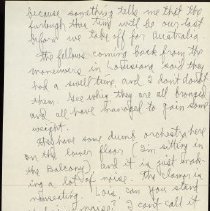 because something tells me that the
furlough this time will be our last
before we take off for Australia.
The fellows coming back from the
maneuvers in Louisiana said they
had a swell time and I don't doubt
them. Seemingly they are all bronzed
and all have managed to gain some
weight.
We have some dumb orchestra here
on the lower floor (I'm sitting in
the Balcony) and it is just mak-
ing a lot of noise. The clamor is
nauseating. Lois can you stand
noise? I can't call it